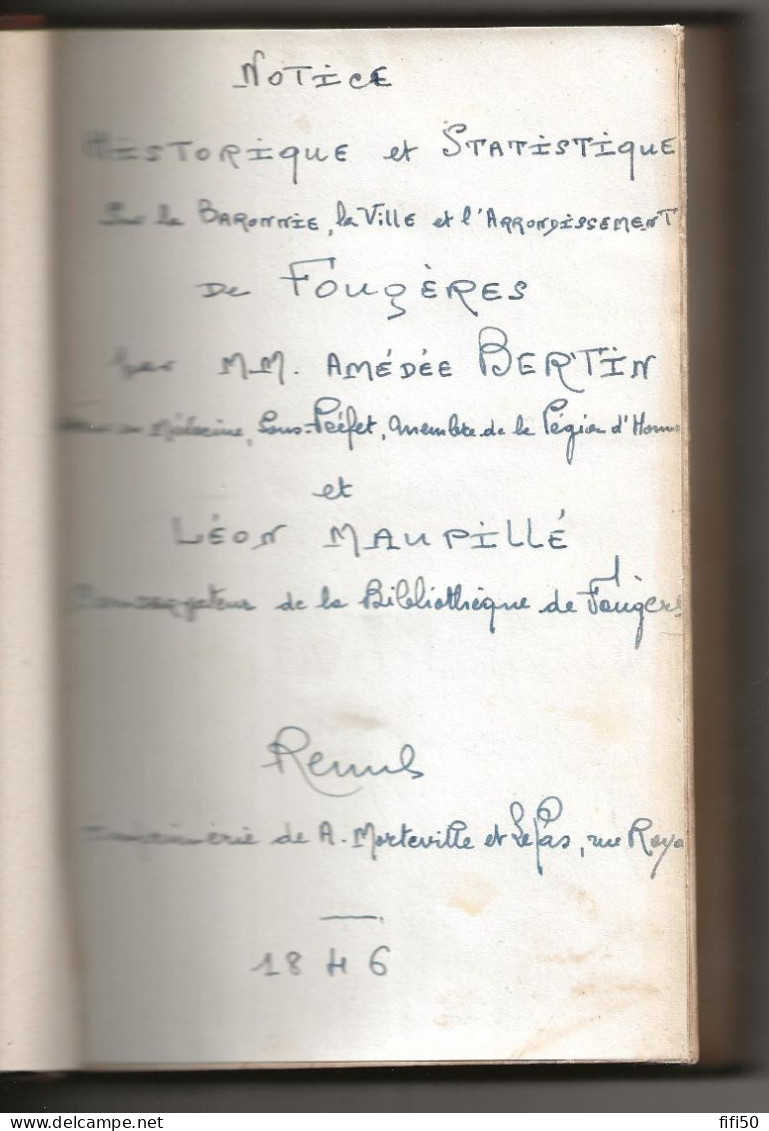 NOTICE
HISTORIQUE et STATISTIQUE
Sur la BARONNIE, la VILLE et l'ARRONDISSEMENT
De FOUGÈRES
par MM. AMÉDÉE BERTIN
en Médecine, Sous-Préfet, membre de la Légion d'Honn
et
LÉON MAUPILLÉ
Conservateur de la Bibliothèque de Fougères
Rennes
Imprimerie de A. Morteville et Lefas, rue Roya
1846
fifi50